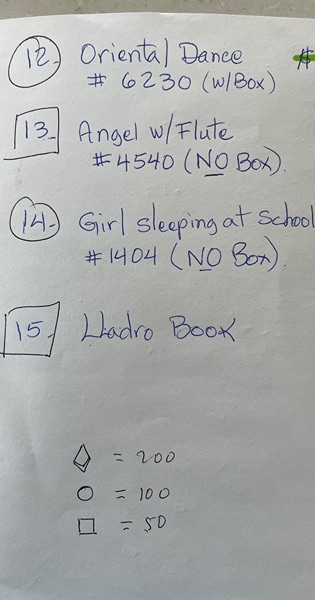 12. Oriental Dance $
# 6230 (w/Box)
13. Angel w/Flute
#4540 (NO Box).
14. Girl sleeping at School
#1404 (NO Box).
15. Lladro Book
= 200
= 100
= 50